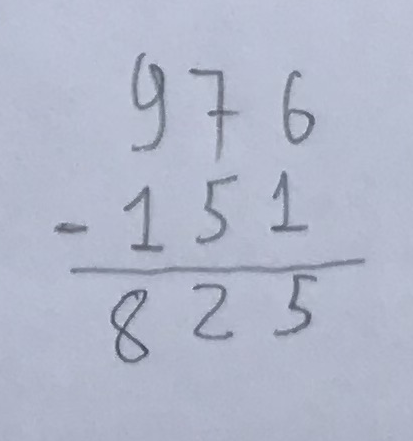 976
- 151
825